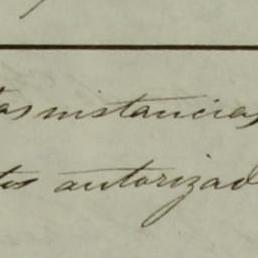 tas instancias
tos autorizad